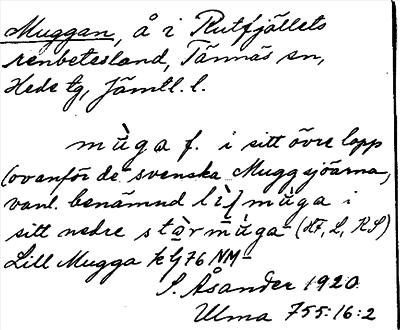 Muggan, å i Rutfjällets
renbetesland, Tännäs sn,
Hede tg, Jämtl. l.
mùga f. i sitt övre lopp
(ovanför de svenska Muggsjöarna,
vanl. benämnd mùga i
sitt nedre stormùga (HF, L, RS)
Lill Mugga 76 NM
S. Åsander 1920
Ulma 755:16:2